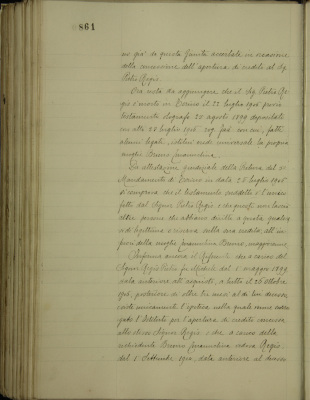 861
ne già da questa Giunta accertate in occasione
della concessione dell'apertura di credito al Sig.
Pietro Regis.
Ora resta da aggiungere che il Sig. Pietro Re-
gis è morto in Torino il 22 luglio 1906 previo
testamento olografo 20 agosto 1899 depositato
in atti 28 luglio 1906 rog. not.
alcuni legati, istituì erede universale la propria
moglie Bruno Emanuelina.
Da attestazione giudiziale della Pretura del
Mandamento di Torino in data 26 luglio 1906
si comprova che il testamento suddetto è l'unico
fatto dal Signor Pietro Regis e che questi non lasciò
altre persone che abbiano diritti a quota qualsia-
si di legittima o riserva sulla sua eredità, all'in-
fuori della moglie Emanuelina Bruno, maggiorenne.
Conferma ancora il Referente che a carico del
Signor Regis Pietro fu Modesto dal 1 maggio 1899
data anteriore all'acquisto, a tutto il 26 ottobre
1906, posteriore di oltre tre mesi al di lui decesso
esiste unicamente l'ipoteca nella quale venne surro-
gato l'Istituto per l'apertura di credito concessa
allo stesso Signor Regis e che a carico della
Bruno Emanuelina vedova Regis,
dal 1° Settembre 1900, data anteriore al decesso